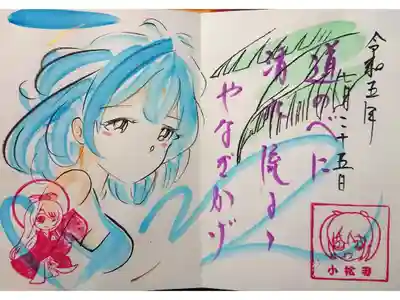 令和五年
七月二十五日
道のべに
清水流るゝ
やなぎかげ